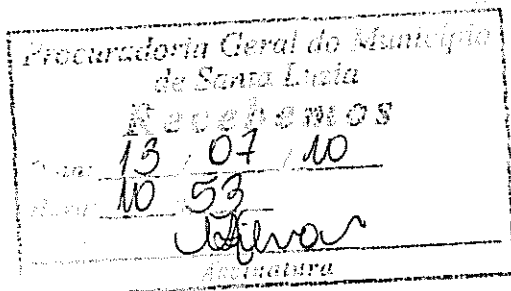 Procuradoria Geral do Município
de Santa Luzia
Recebemos
Data: 13 / 07 / 10
Hora: 10 53
Assinatura